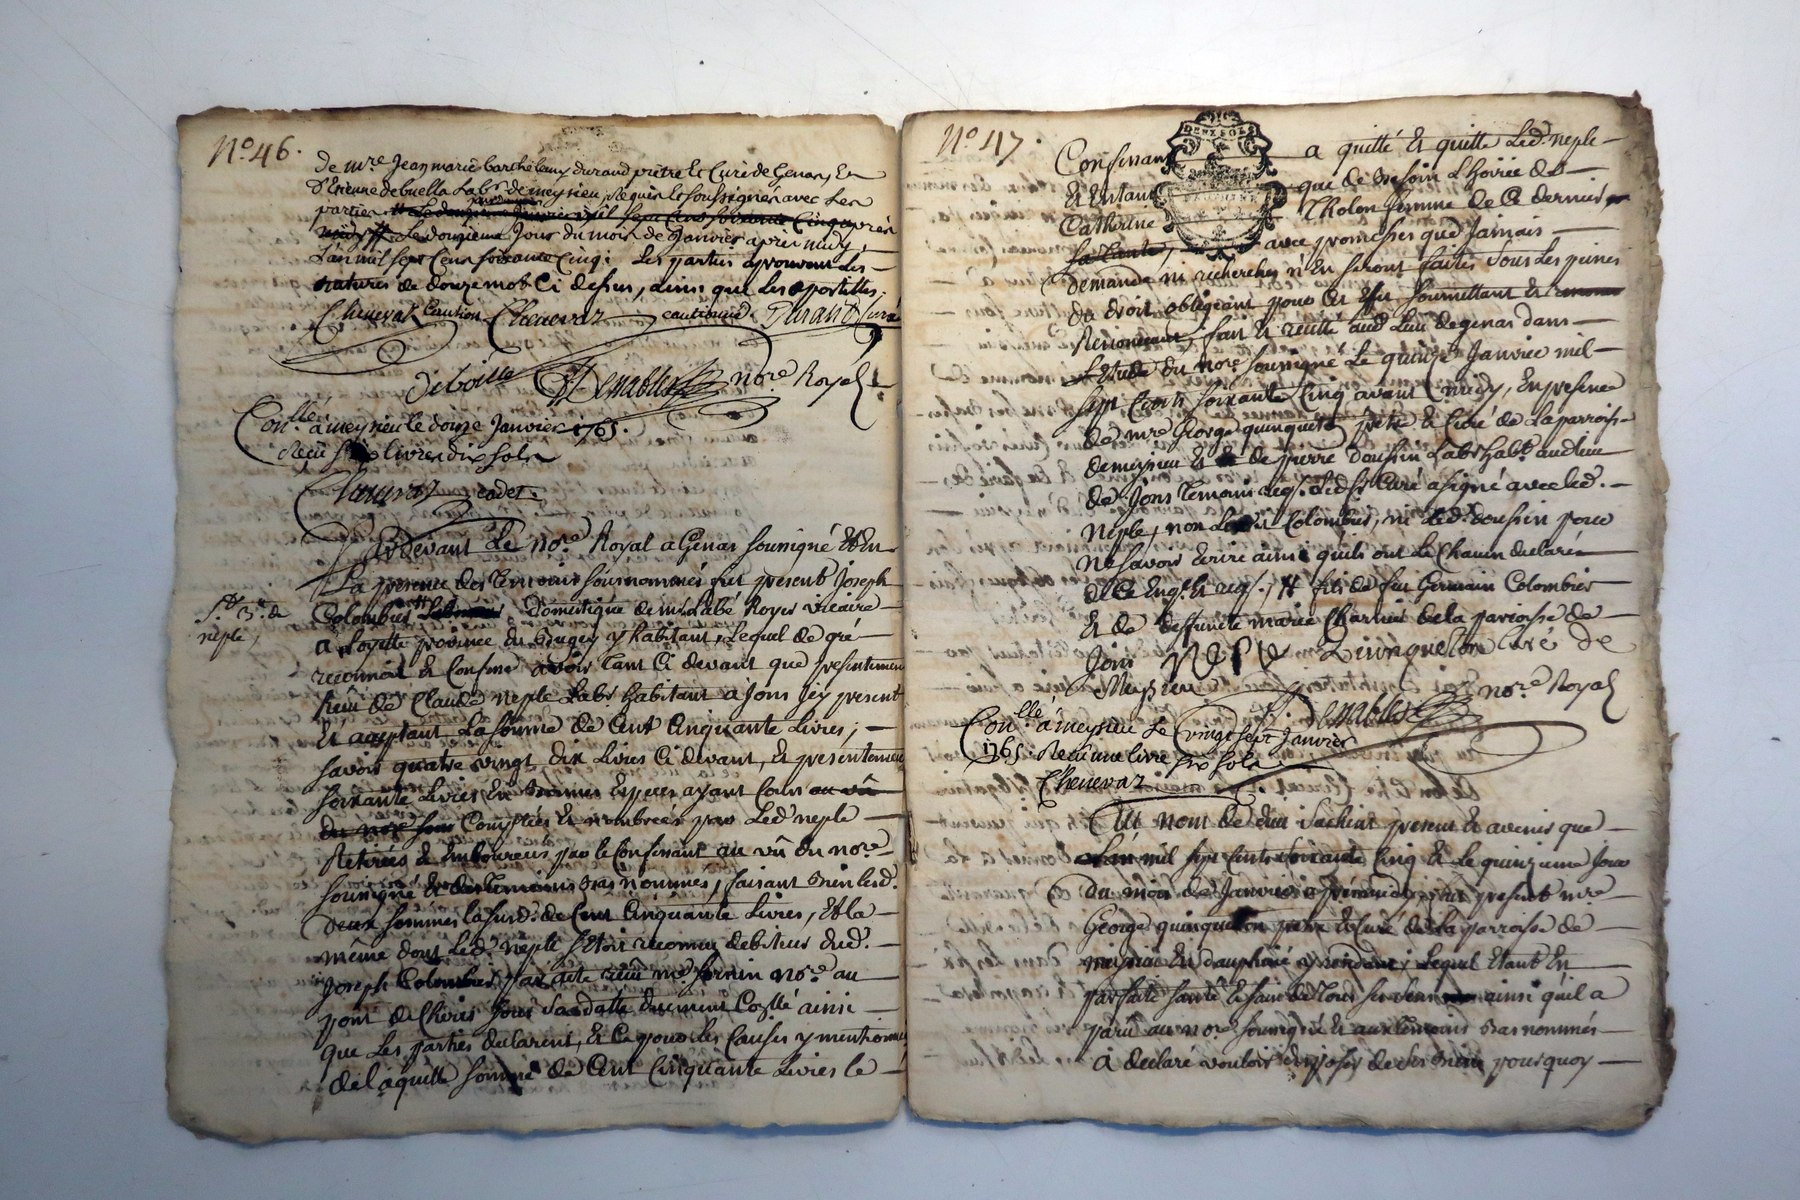 No. 46.
de mre Jean marie barthelemy durand prêtre et Curé de Genas, et
Sr Etienne debuella Labr de meysieu, requis et soussignés avec Les
parties
Le douzieme Jour du mois de Janvier apres midy,
L'an mil sept Cens soixante Cinq. Les parties aprouvent Les
ratures de douze mot Ci dessus, ainsi que Les apostilles.
Chenevaz Caution Chenevaz cautionné Durand Curé
deboilla Desnables nore Royal
Conllé a meysieu le douze Janvier 1765.
Reçu livres dix sols
Chenevaz cadet.
Pardevant Le nore Royal a Genas soussigné Et En
La presence des Temoins sousnommés fut présent Joseph
Qce de
neple,
Colombier # domestique de mr L'abé Royer vicaire
a Loyette province du Bugey y habitant, Lequel de gré
reconnoit et Confesse avoir tant Ci devant que presentement
Reçu de Claude neple Labr habitant à Jons Jcy present
Et aceptant La somme de Cent Cinquante Livres;
savoir quatre vingt dix Livres Ci devant, et presentement
soixante Livres En bonnes Especes ayant Cours au vû
du nore sous Comptées et nombreés par Led neple
Retirées et Emboursées par le Confessant au vû du nore
soussigné et des temoins bas nommés, faisant bien lesd.
deux sommes la susde de Cent Cinquante Livres, Et la
même dont Led. neple s'etoit reconnu debiteur dud.
Joseph Colombier par acte reçu me nore au
pont de Cheris sous sa datte duement Collé ainsi
que Les parties declarent, et Ce pour les Causes y mentionnées
de laquelle somme de Cent Cinquante Livres le
No. 47.
DEUX SOLS
Confessant a quitté et quitte Led. neple
Et Entant que de besoin L'hoirie de
Catherine Rolon femme de Ce dernier
sa Tante, avec promesses que Jamais
demande ni recherches n'En seront faites sous Les peines
du droit obligeant pour Cet Effet soumettant et
Renonceant, fait et recitté aud Lieu de genas dans
L'Etude du nore soussigné Le quinze Janvier mil
sept Cents soixante Cinq avant midy, En presence
de mre George quinqueton prêtre et Curé de La parroisse
de meysieu et de pierre doussin Labr habt aud lieu
de Jons temoins reqs. Led Sr Curé a signé avec led.
neple, non Led Colombier, ni Led. doussin pour
ne savoir Ecrire ainsi qu'ils ont Le Chacun declaré
de Ce Enqs. et reqs. # fils de feu Germain Colombier
Et de deffunte marie Charnier de la parroisse de
Jons NEPLE Quinqueton Curé de
Meyzieu Desnables nore Royal
Conllé a meysieu Le vingt sept Janvier
1765. Reçu une livre six sols
Chenevaz
Au nom de dieu sachent present et avenir que
L'an mil sept cents soixante Cinq et Le quinzieme Jour
du mois de Janvier apres midy, fut present mre
George quinqueton prêtre et Curé de La parroisse de
meysieu En dauphiné y residant, Lequel Etant En
parfaite santé et sain de tous ses sens ainsi qu'il a
paru au nore soussigné et aux temoins bas nommés
a declaré vouloir disposer de ses biens pourquoy